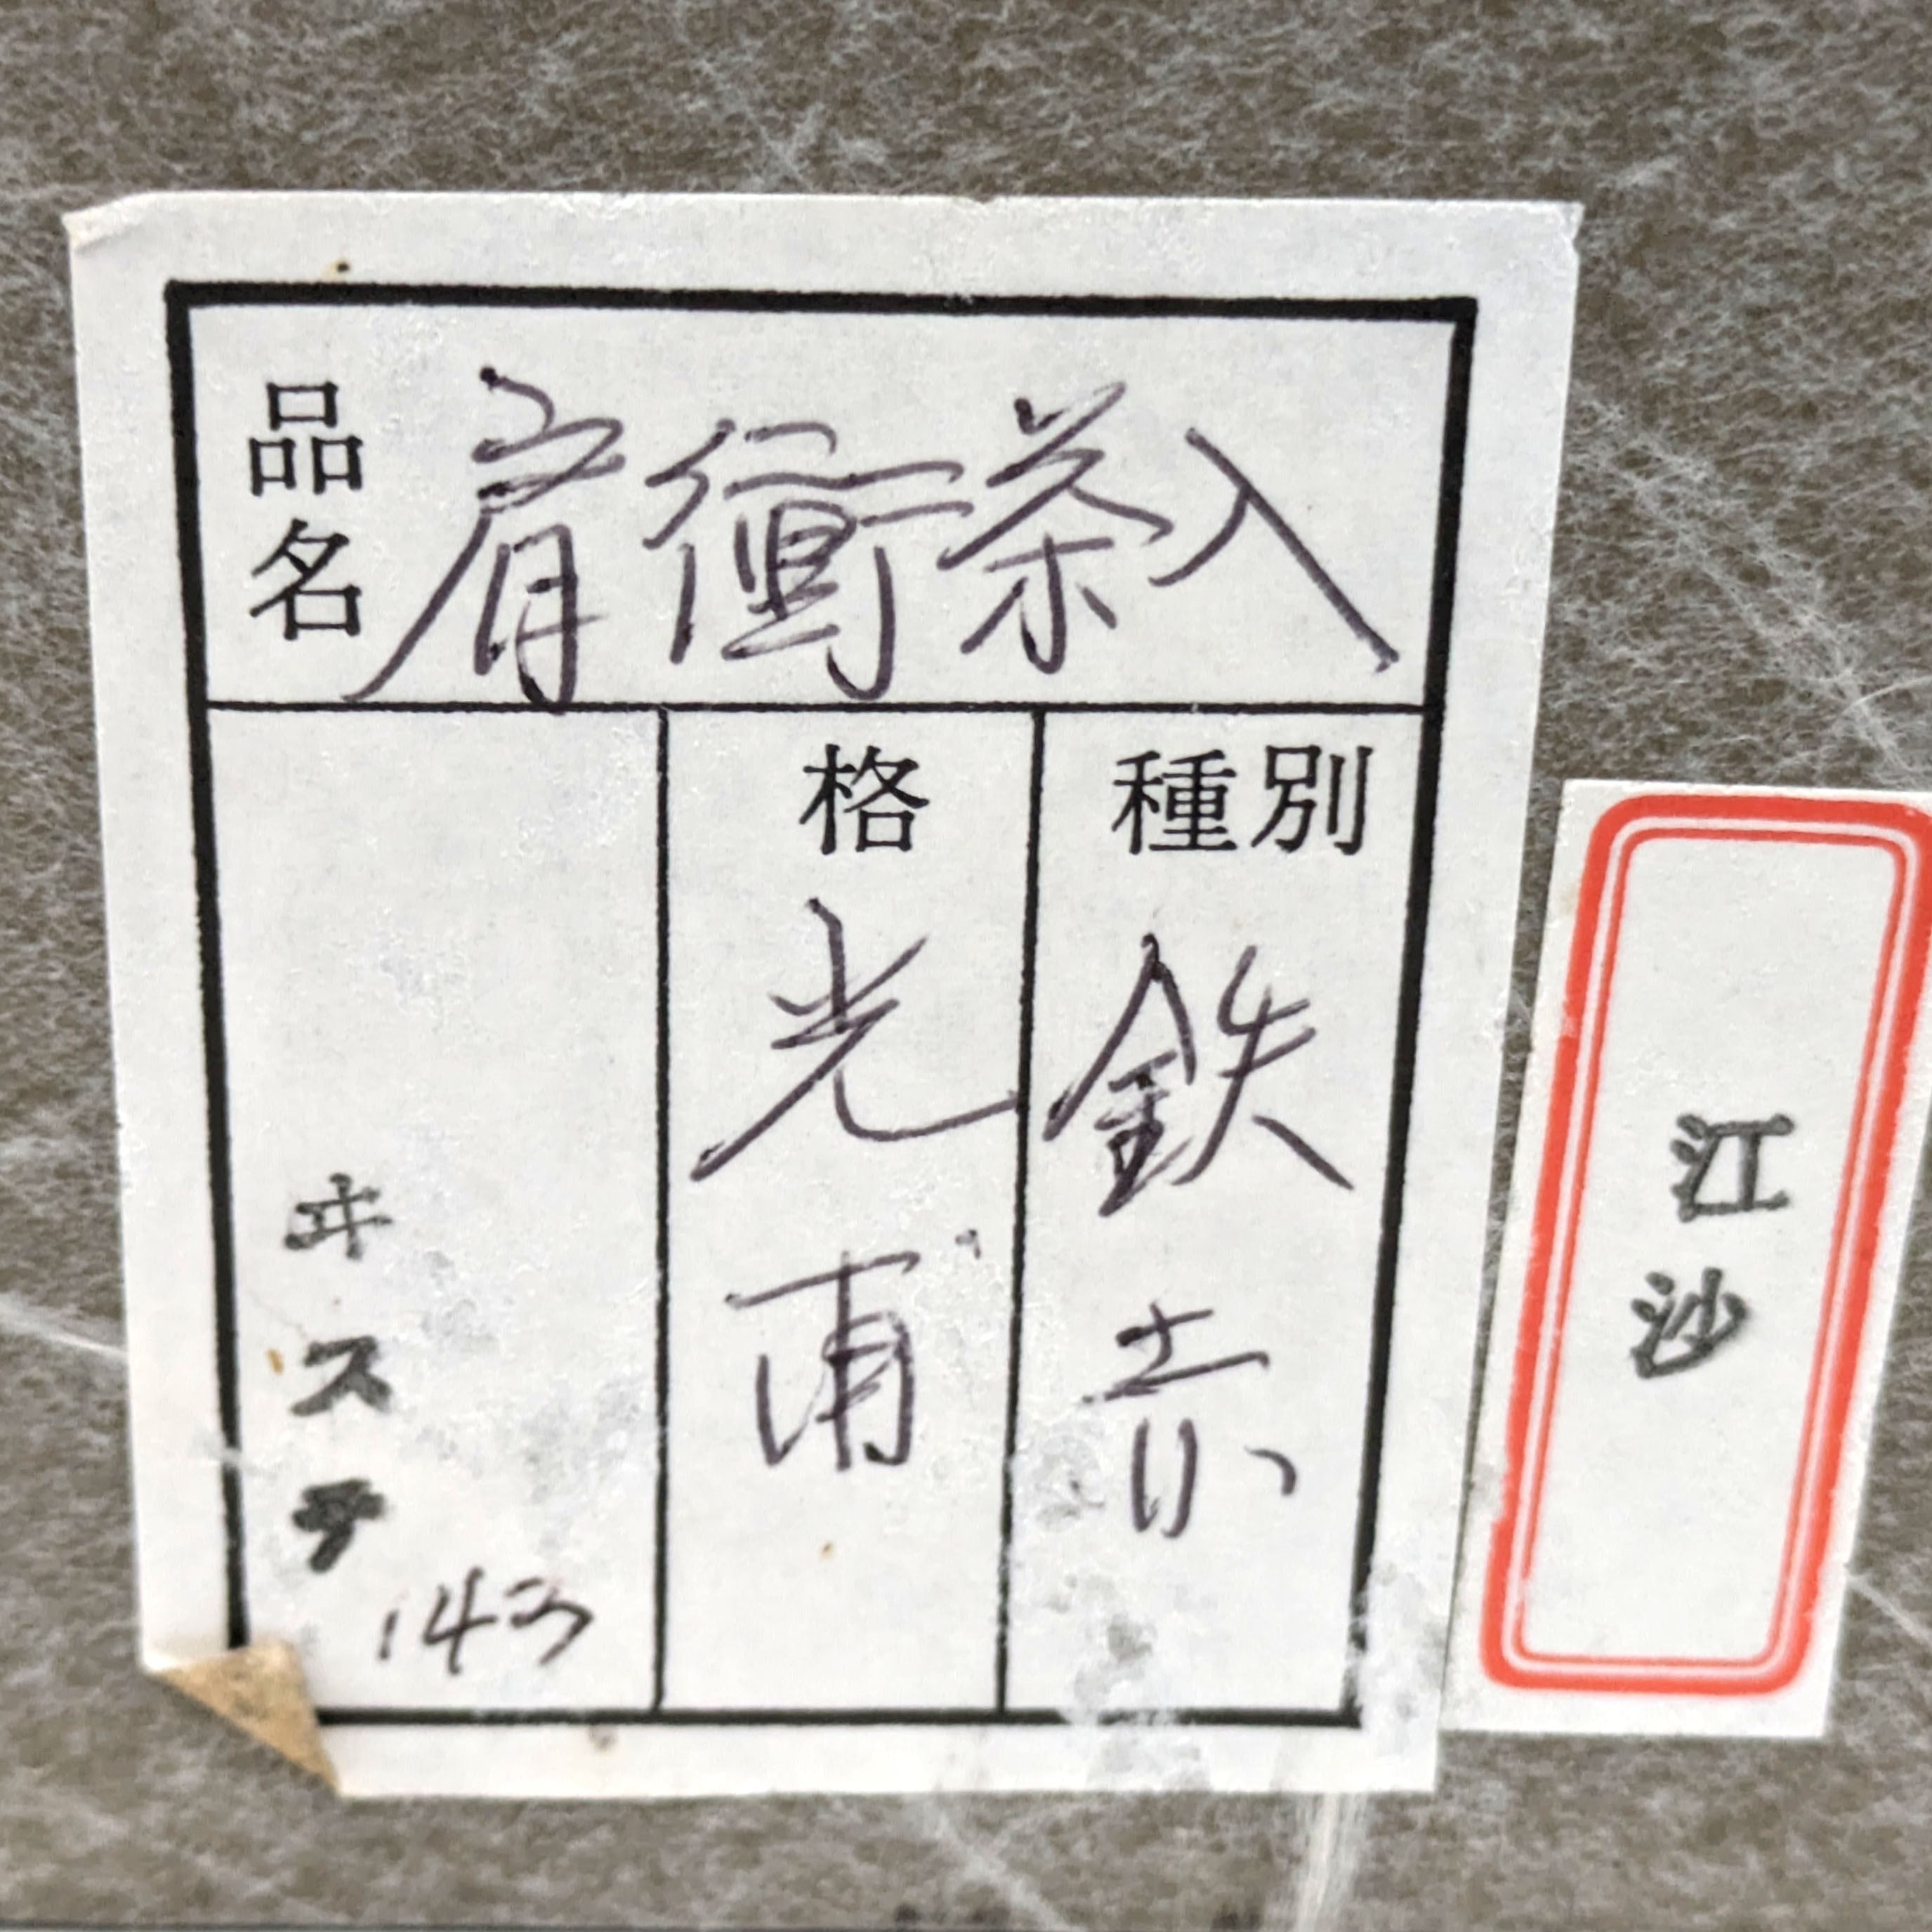 品名 肩衝茶入
種別 鉄赤
格 光甫
ヰステ
143
江沙